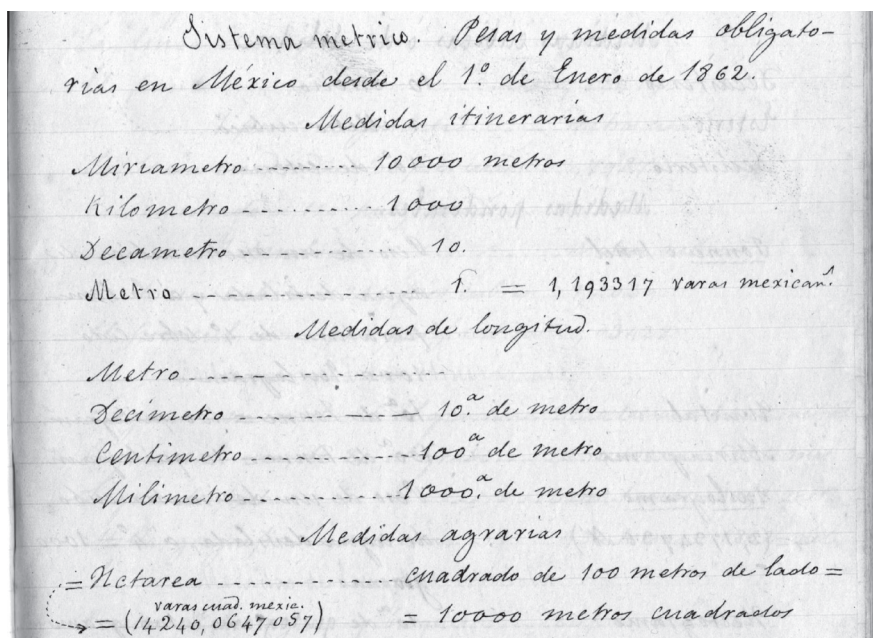 Sistema metrico. Pesas y medidas obligato-
rias en México desde el 1º. de Enero de 1862.
Medidas itinerarias
Miriametro ........ 10000 metros
Kilometro ........... 1000
Decametro ............... 10.
Metro ..................... 1. = 1,193317 varas mexican.s
Medidas de longitud.
Metro
Decimetro ............. 10.a de metro
Centimetro ........... 100a de metro
Milimetro ........... 1000.a de metro
Medidas agrarias
= Hctarea ............... cuadrado de 100 metros de lado =
varas cuad. mexic.
= (14240,0647057) = 10000 metros cuadrados